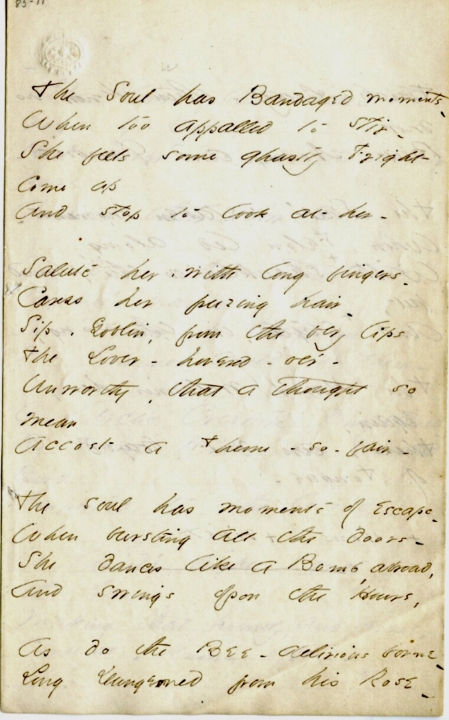 85-11
The Soul has Bandaged moments -
When too appalled to stir -
She feels some ghastly Fright
come up
And stop to look at her -
Salute her with long fingers -
Caress her freezing hair -
Sip, Goblin, from the very lips
The Lover - hovered - o'er -
Unworthy, that a thought so
mean
Accost a Theme - so - fair -
The soul has moments of Escape -
When bursting all the doors -
She dances like a Bomb, abroad,
And swings opon the Hours,
As do the Bee - delirious borne -
Long Dungeoned from his Rose -